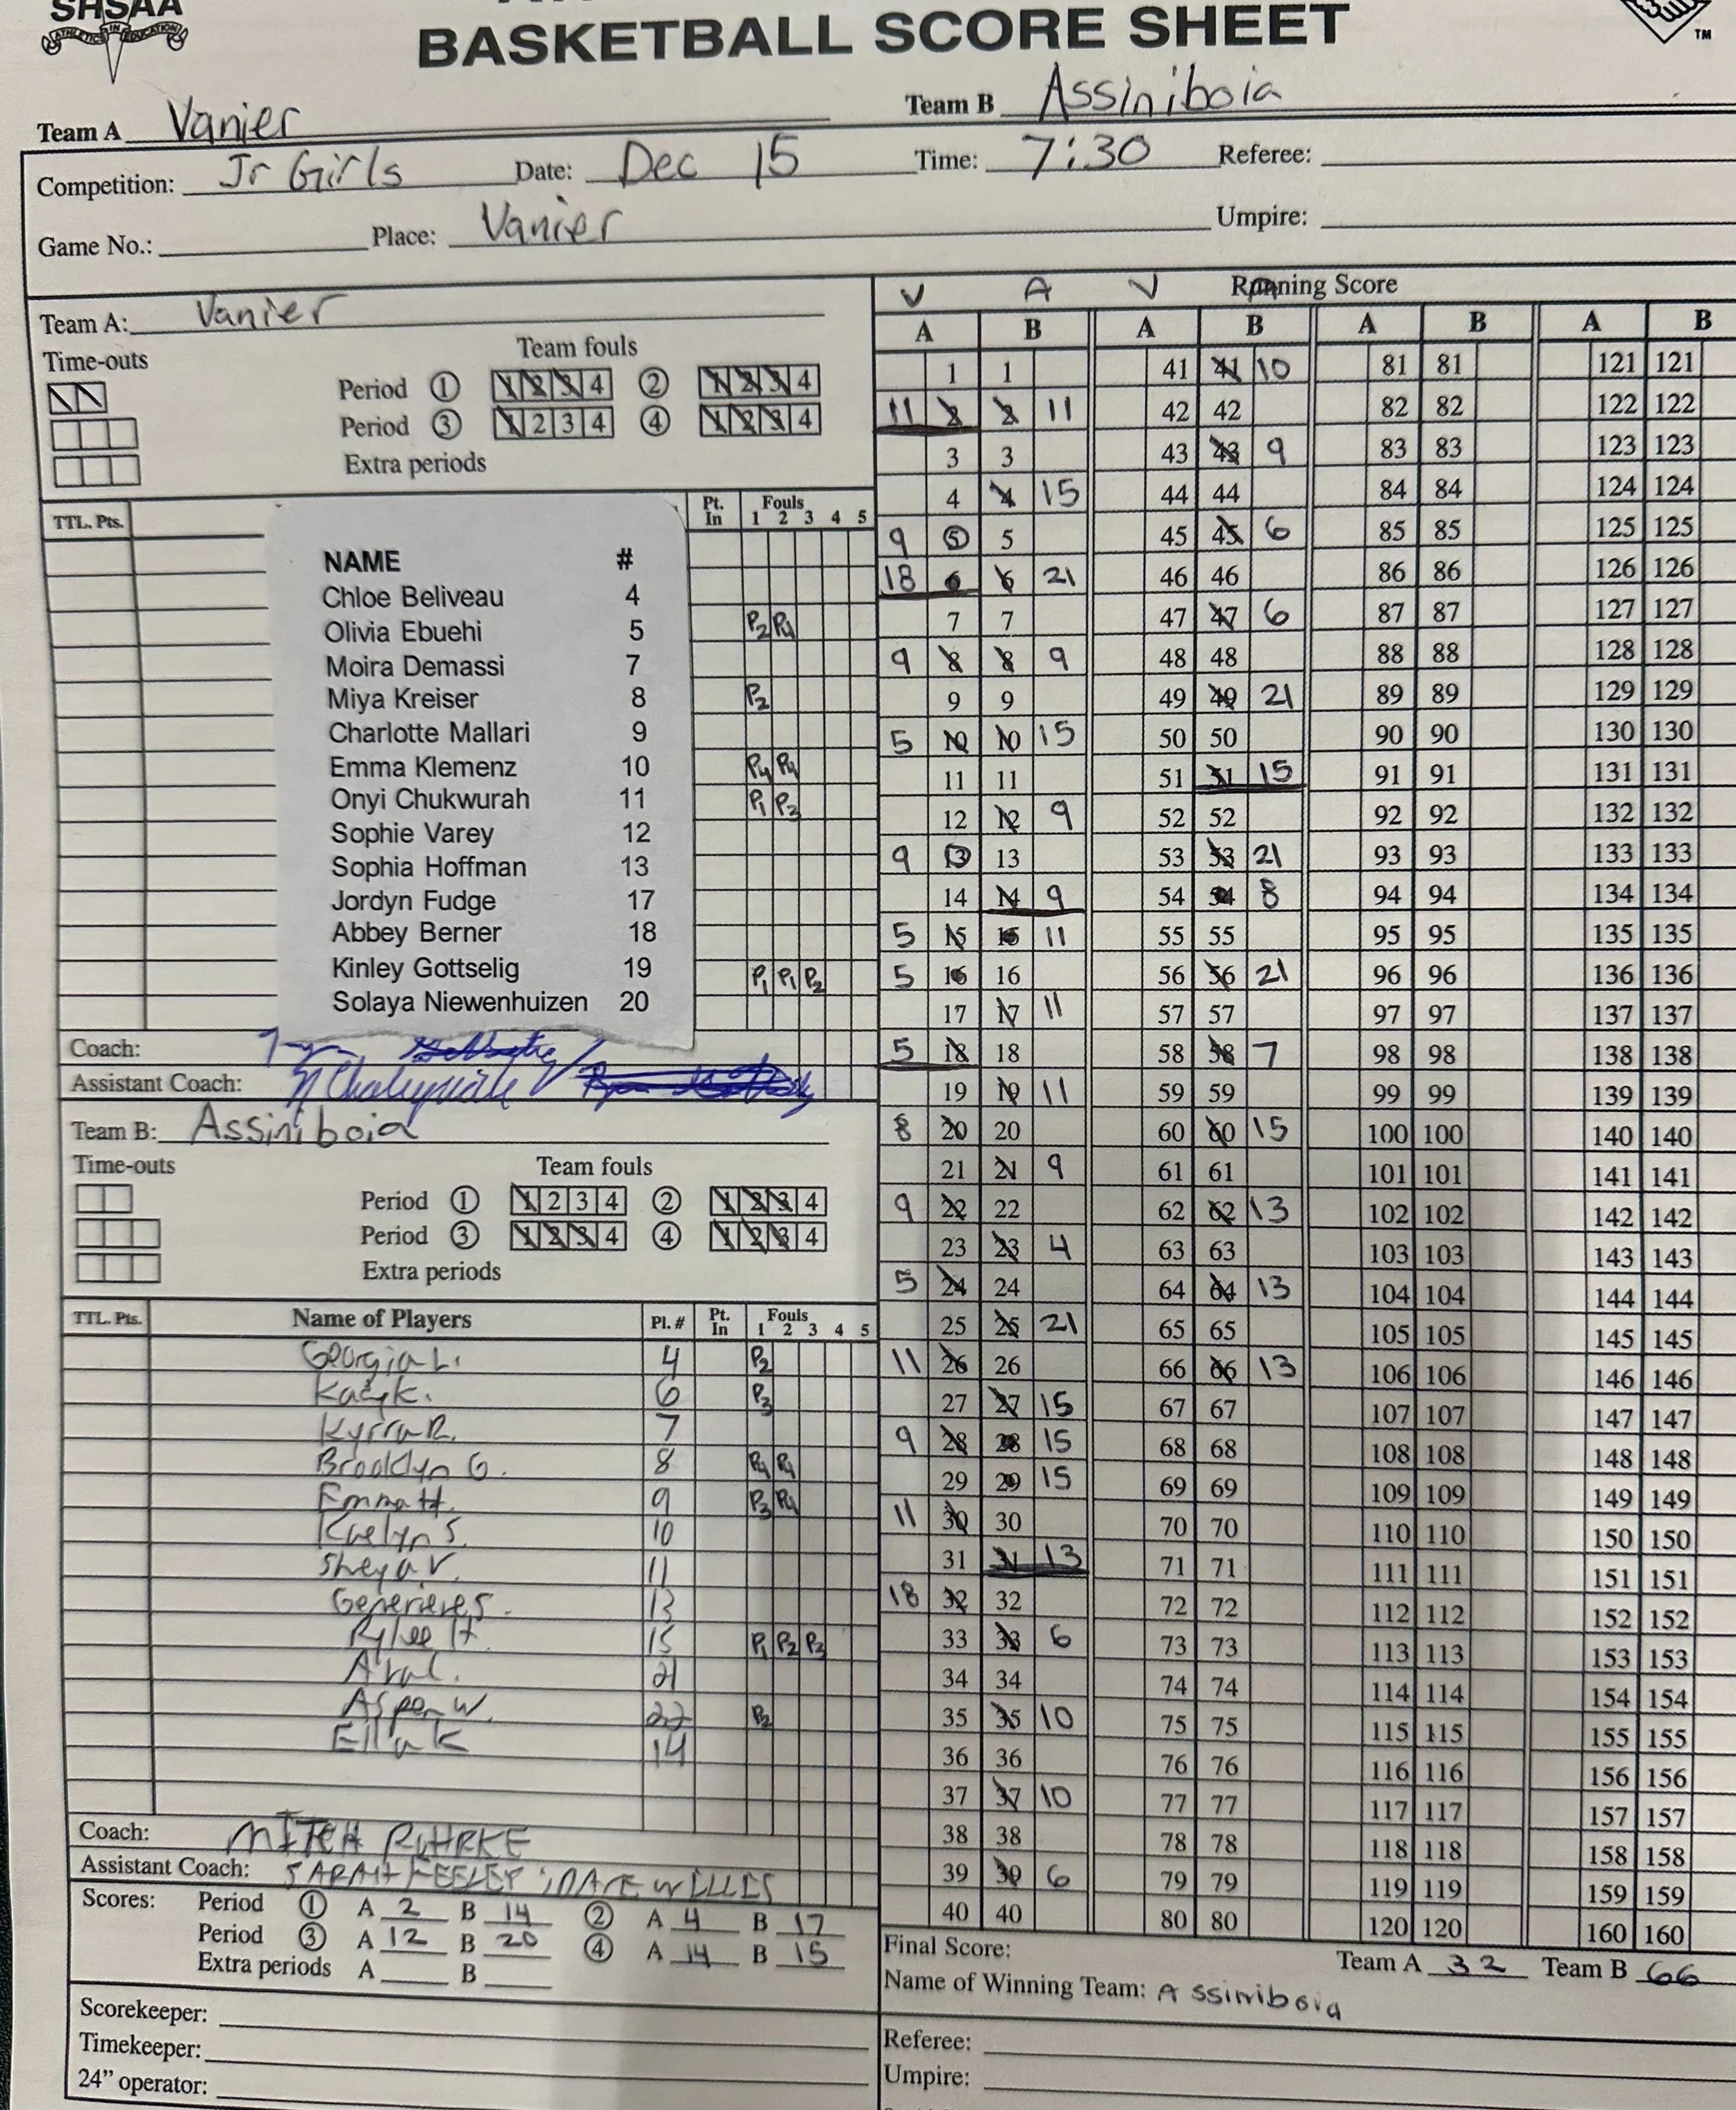 SHSAA
ATHLETICS IN EDUCATION
BASKETBALL SCORE SHEET
TM
Team A Vanier Team B Assiniboia
Competition: Jr Girls Date: Dec 15 Time: 7:30 Referee:
Game No.: Place: Vanier Umpire:
Team A: Vanier
Time-outs Team fouls
Period 1 1 2 3 4 2 1 2 3 4
Period 3 1 2 3 4 4 1 2 3 4
Extra periods
TTL. Pts. Pt. In Fouls 1 2 3 4 5
NAME #
Chloe Beliveau 4
Olivia Ebuehi 5 P2 P4
Moira Demassi 7
Miya Kreiser 8 P2
Charlotte Mallari 9
Emma Klemenz 10 P4 P4
Onyi Chukwurah 11 P1 P3
Sophie Varey 12
Sophia Hoffman 13
Jordyn Fudge 17
Abbey Berner 18
Kinley Gottselig 19 P1 P1 P2
Solaya Niewenhuizen 20
Coach:
Assistant Coach:
Team B: Assiniboia
Time-outs Team fouls
Period 1 1 2 3 4 2 1 2 3 4
Period 3 1 2 3 4 4 1 2 3 4
Extra periods
TTL. Pts. Name of Players Pl. # Pt. In Fouls 1 2 3 4 5
Georgia L. 4 P2
K. 6 P3
Kyrra R. 7
Brooklyn G. 8 P4 P4
Emma H. 9 P3 P4
Kaelyn S. 10
Sheya V. 11
13
Rylee H. 15 P1 P2 P3
21
Aspen W. 22 P2
Ella K 14
Coach: MITCH
Assistant Coach: SARAH
Scores: Period 1 A 2 B 14 2 A 4 B 17
Period 3 A 12 B 20 4 A 14 B 15
Extra periods A B
Scorekeeper:
Timekeeper:
24” operator:
V A V Running Score
A B A B A B A B
1 1 41 41 10 81 81 121 121
11 2 2 11 42 42 82 82 122 122
3 3 43 43 9 83 83 123 123
4 4 15 44 44 84 84 124 124
9 5 5 45 45 6 85 85 125 125
18 6 6 21 46 46 86 86 126 126
7 7 47 47 6 87 87 127 127
9 8 8 9 48 48 88 88 128 128
9 9 49 49 21 89 89 129 129
5 10 10 15 50 50 90 90 130 130
11 11 51 51 15 91 91 131 131
12 12 9 52 52 92 92 132 132
9 13 13 53 53 21 93 93 133 133
14 14 9 54 54 8 94 94 134 134
5 15 15 11 55 55 95 95 135 135
5 16 16 56 56 21 96 96 136 136
17 17 11 57 57 97 97 137 137
5 18 18 58 58 7 98 98 138 138
19 19 11 59 59 99 99 139 139
8 20 20 60 60 15 100 100 140 140
21 21 9 61 61 101 101 141 141
9 22 22 62 62 13 102 102 142 142
23 23 4 63 63 103 103 143 143
5 24 24 64 64 13 104 104 144 144
25 25 21 65 65 105 105 145 145
11 26 26 66 66 13 106 106 146 146
27 27 15 67 67 107 107 147 147
9 28 28 15 68 68 108 108 148 148
29 29 15 69 69 109 109 149 149
11 30 30 70 70 110 110 150 150
31 31 13 71 71 111 111 151 151
18 32 32 72 72 112 112 152 152
33 33 6 73 73 113 113 153 153
34 34 74 74 114 114 154 154
35 35 10 75 75 115 115 155 155
36 36 76 76 116 116 156 156
37 37 10 77 77 117 117 157 157
38 38 78 78 118 118 158 158
39 39 6 79 79 119 119 159 159
40 40 80 80 120 120 160 160
Final Score: Team A 32 Team B 66
Name of Winning Team: Assiniboia
Referee:
Umpire: